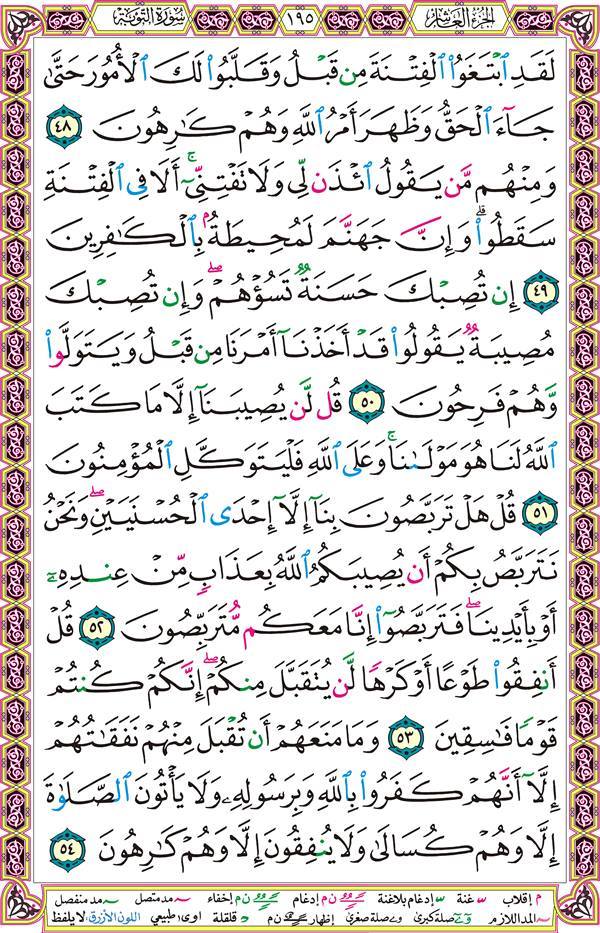 الجزء العاشر
١٩٥
سورة التوبة
لَقَدِ ٱبْتَغَوُا۟ ٱلْفِتْنَةَ مِن قَبْلُ وَقَلَّبُوا۟ لَكَ ٱلْأُمُورَ حَتَّىٰ
جَآءَ ٱلْحَقُّ وَظَهَرَ أَمْرُ ٱللَّهِ وَهُمْ كَٰرِهُونَ ٤٨
وَمِنْهُم مَّن يَقُولُ ٱئْذَن لِّى وَلَا تَفْتِنِّىٓ ۚ أَلَا فِى ٱلْفِتْنَةِ
سَقَطُوا۟ ۗ وَإِنَّ جَهَنَّمَ لَمُحِيطَةٌۢ بِٱلْكَٰفِرِينَ
٤٩ إِن تُصِبْكَ حَسَنَةٌ تَسُؤْهُمْ ۖ وَإِن تُصِبْكَ
مُصِيبَةٌ يَقُولُوا۟ قَدْ أَخَذْنَآ أَمْرَنَا مِن قَبْلُ وَيَتَوَلَّوا۟
وَّهُمْ فَرِحُونَ ٥٠ قُل لَّن يُصِيبَنَآ إِلَّا مَا كَتَبَ
ٱللَّهُ لَنَا هُوَ مَوْلَىٰنَا ۚ وَعَلَى ٱللَّهِ فَلْيَتَوَكَّلِ ٱلْمُؤْمِنُونَ
٥١ قُلْ هَلْ تَرَبَّصُونَ بِنَآ إِلَّآ إِحْدَى ٱلْحُسْنَيَيْنِ ۖ وَنَحْنُ
نَتَرَبَّصُ بِكُمْ أَن يُصِيبَكُمُ ٱللَّهُ بِعَذَابٍ مِّنْ عِندِهِۦٓ
أَوْ بِأَيْدِينَا ۖ فَتَرَبَّصُوٓا۟ إِنَّا مَعَكُم مُّتَرَبِّصُونَ ٥٢ قُلْ
أَنفِقُوا۟ طَوْعًا أَوْ كَرْهًا لَّن يُتَقَبَّلَ مِنكُمْ ۖ إِنَّكُمْ كُنتُمْ
قَوْمًا فَٰسِقِينَ ٥٣ وَمَا مَنَعَهُمْ أَن تُقْبَلَ مِنْهُمْ نَفَقَٰتُهُمْ
إِلَّآ أَنَّهُمْ كَفَرُوا۟ بِٱللَّهِ وَبِرَسُولِهِۦ وَلَا يَأْتُونَ ٱلصَّلَوٰةَ
إِلَّا وَهُمْ كُسَالَىٰ وَلَا يُنفِقُونَ إِلَّا وَهُمْ كَٰرِهُونَ ٥٤
م إقلاب غنة إدغام بلاغنة ن م إدغام ن م إخفاء مد متصل مد منفصل
المد اللازم صلة كبرى صلة صغرى إظهار ن م قلقلة اوى طبيعي اللون الأزرق: لا يلفظ